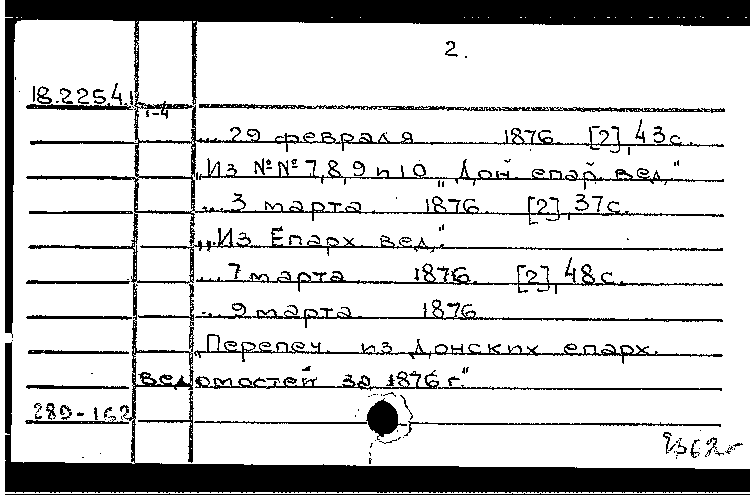 2.
18.225.4.1
1-4
... 29 февраля 1876. [2], 43 с.
„Из №№ 7, 8, 9 и 10 „Дон. епар. вед."
... 3 марта 1876. [2], 37 с.
„Из Епарх. вед."
... 7 марта 1876. [2], 48 с.
... 9 марта 1876
„Перепеч. из Донских епарх.
ведомостей за 1876 г."
289-162